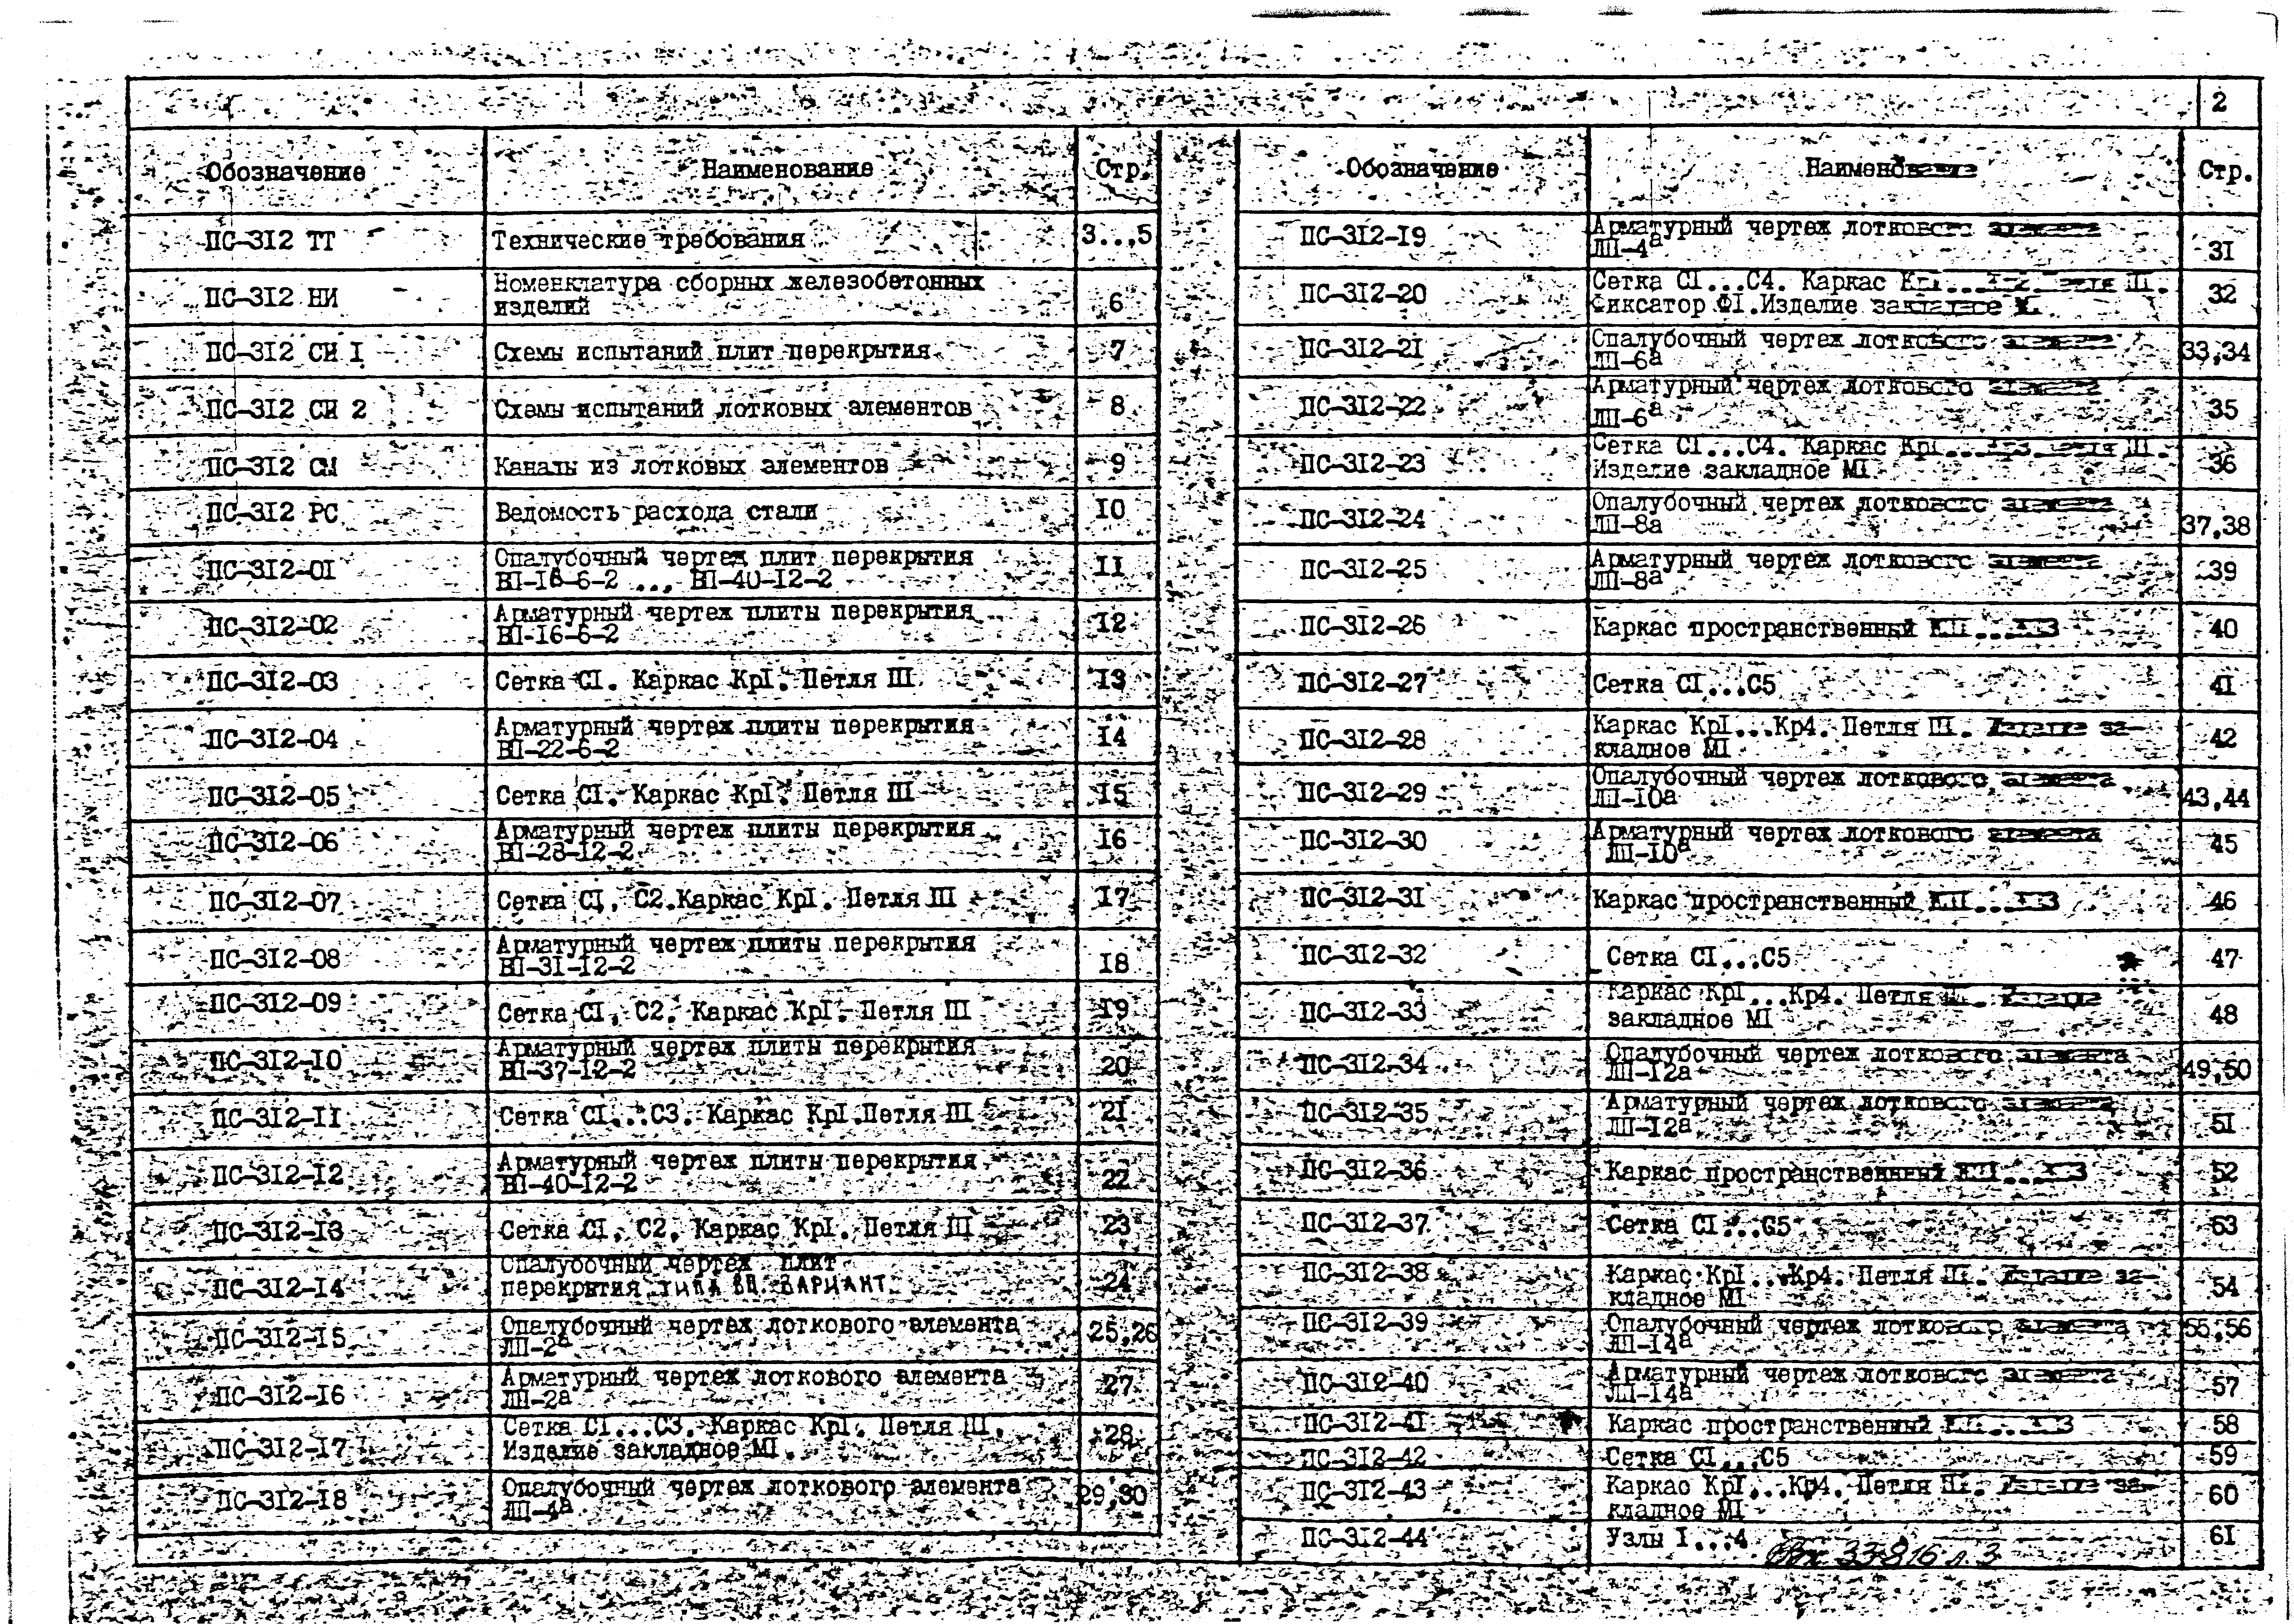 2
Обозначение
Наименование
Стр.
ПС-312 ТТ
Технические требования
3...5
ПС-312 НИ
Номенклатура сборных железобетонных
изделий
6
ПС-312 СИ 1
Схемы испытаний плит перекрытия
7
ПС-312 СИ 2
Схемы испытаний лотковых элементов
8
ПС-312 СМ
Каналы из лотковых элементов
9
ПС-312 РС
Ведомость расхода стали
10
ПС-312-01
Опалубочный чертеж плит перекрытия
ВП-16-6-2 ... ВП-40-12-2
11
ПС-312-02
Арматурный чертеж плиты перекрытия
ВП-16-6-2
12
ПС-312-03
Сетка С1. Каркас Кр1. Петля П1
13
ПС-312-04
Арматурный чертеж плиты перекрытия
ВП-22-6-2
14
ПС-312-05
Сетка С1. Каркас Кр1. Петля П1
15
ПС-312-06
Арматурный чертеж плиты перекрытия
ВП-28-12-2
16
ПС-312-07
Сетка С1, С2.Каркас Кр1. Петля П1
17
ПС-312-08
Арматурный чертеж плиты перекрытия
ВП-31-12-2
18
ПС-312-09
Сетка С1, С2. Каркас Кр1. Петля П1
19
ПС-312-10
Арматурный чертеж плиты перекрытия
ВП-37-12-2
20
ПС-312-11
Сетка С1...С3. Каркас Кр1.Петля П1
21
ПС-312-12
Арматурный чертеж плиты перекрытия
ВП-40-12-2
22
ПС-312-13
Сетка С1, С2. Каркас Кр1. Петля П1
23
ПС-312-14
Опалубочный чертеж плит
перекрытия типа ВП. ВАРИАНТ
24
ПС-312-15
Опалубочный чертеж лоткового элемента
ЛП-2а
25,26
ПС-312-16
Арматурный чертеж лоткового элемента
ЛП-2а
27
ПС-312-17
Сетка С1...С3. Каркас Кр1. Петля П1.
Изделие закладное М1.
28
ПС-312-18
Опалубочный чертеж лоткового элемента
ЛП-4а
29,30
Обозначение
Наименование
Стр.
ПС-312-19
Арматурный чертеж лоткового элемента
ЛП-4а
31
ПС-312-20
Сетка С1...С4. Каркас П1.
Фиксатор Ф1.Изделие закладное
32
ПС-312-21
Опалубочный чертеж лоткового элемента
ЛП-6а
33,34
ПС-312-22
Арматурный чертеж лоткового элемента
ЛП-6а
35
ПС-312-23
Сетка С1...С4. Каркас Кр1...Кр3. Петля П1.
Изделие закладное М1
36
ПС-312-24
Опалубочный чертеж лоткового элемента
ЛП-8а
37,38
ПС-312-25
Арматурный чертеж лоткового элемента
ЛП-8а
39
ПС-312-26
Каркас пространственный
40
ПС-312-27
Сетка С1...С5
41
ПС-312-28
Каркас Кр1...Кр4. Петля П1. Изделие за-
кладное М1
42
ПС-312-29
Опалубочный чертеж лоткового элемента
ЛП-10а
43,44
ПС-312-30
Арматурный чертеж лоткового элемента
ЛП-10а
45
ПС-312-31
Каркас пространственный
46
ПС-312-32
Сетка С1...С5
47
ПС-312-33
Каркас Кр1...Кр4. Петля П1. Изделие
закладное М1
48
ПС-312-34
Опалубочный чертеж лоткового элемента
ЛП-12а
49,50
ПС-312-35
Арматурный чертеж лоткового элемента
ЛП-12а
51
ПС-312-36
Каркас пространственный
52
ПС-312-37
Сетка С1...С5
53
ПС-312-38
Каркас Кр1...Кр4. Петля П1. Изделие за-
кладное М1
54
ПС-312-39
Опалубочный чертеж лоткового элемента
ЛП-14а
55,56
ПС-312-40
Арматурный чертеж лоткового элемента
ЛП-14а
57
ПС-312-41
Каркас пространственный
58
ПС-312-42
Сетка С1...С5
59
ПС-312-43
Каркас Кр1...Кр4. Петля П1. Изделие за-
кладное М1
60
ПС-312-44
Узлы 1...4
61
33816 л.3